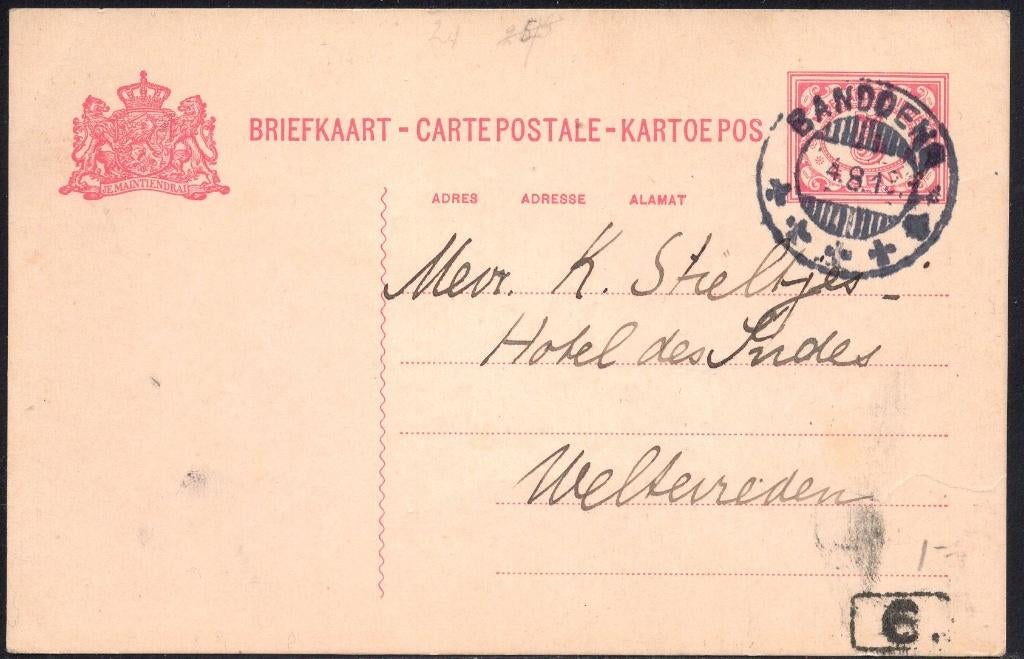 24
BRIEFKAART - CARTE POSTALE - KARTOE POS
JE MAINTIENDRAI
BANDOENG
5
4.8.1
ADRES ADRESSE ALAMAT
Mevr. K. Stieltjes
Hotel des Indes
Weltevreden
1-
6.